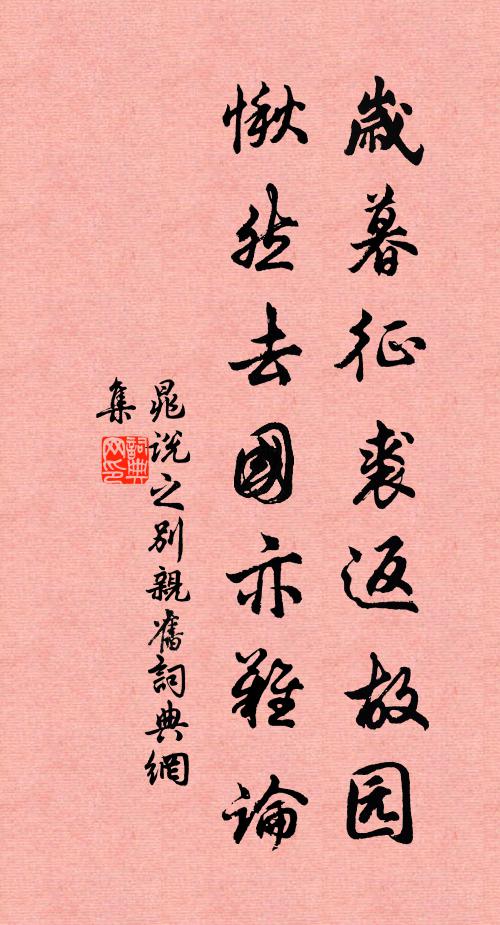 歲暮征裘返故园
愀然去國亦難論
晁說之別親舊詞典網
集
詞典網印